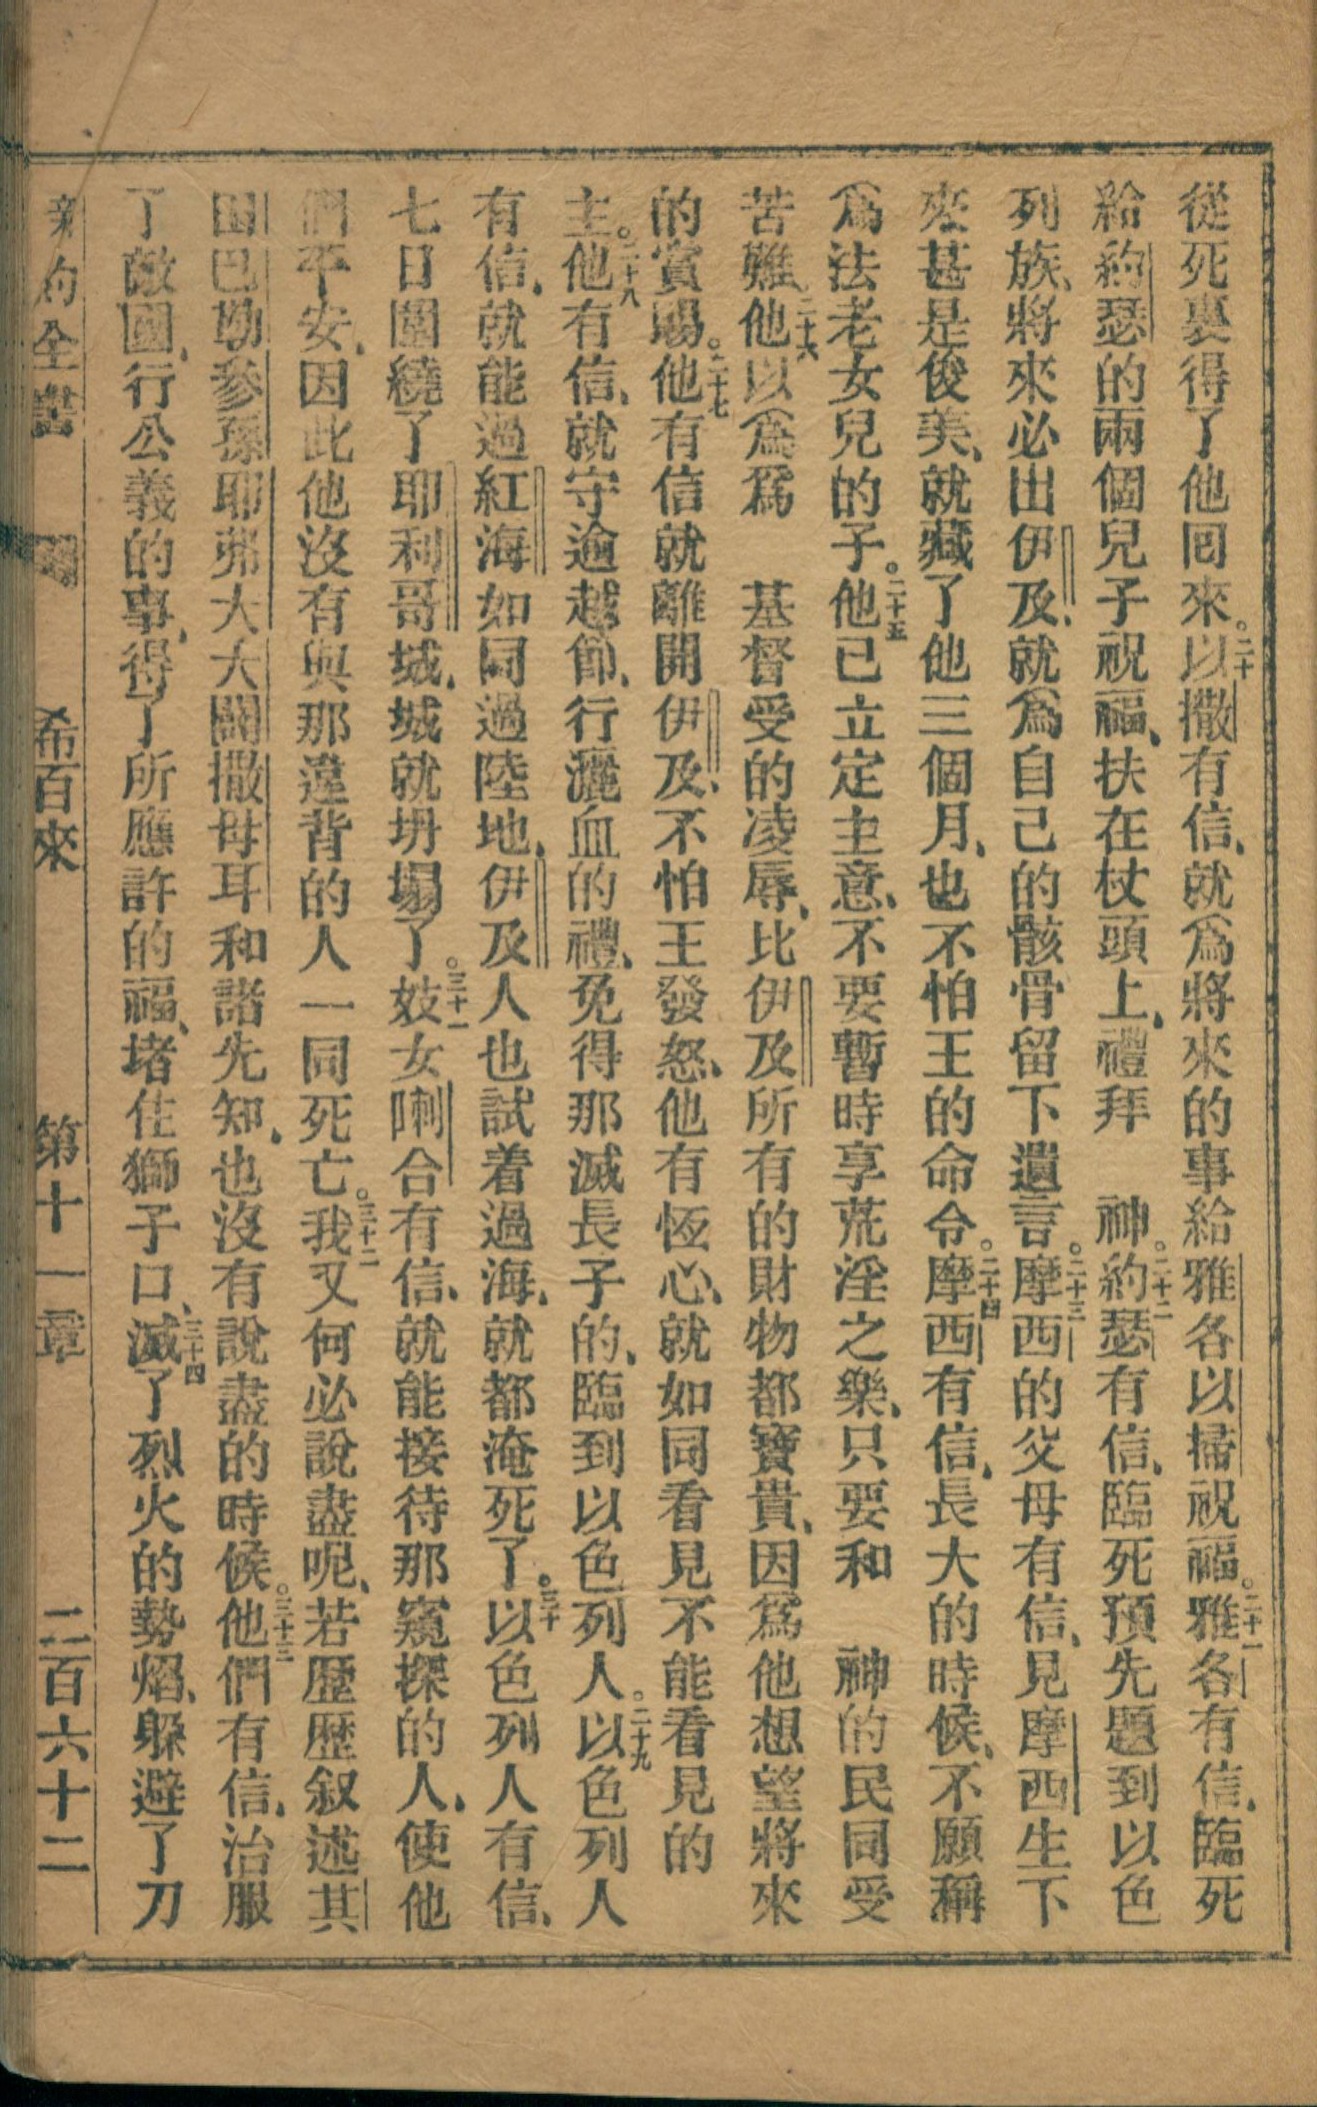 從死裏得了他囘來。二十以撒有信、就爲將來的事給雅各以掃祝福。二十一雅各有信、臨死
給約瑟的兩個兒子祝福、扶在杖頭上、禮拜　神。二十二約瑟有信、臨死預先題到以色
列族、將來必出伊及、就爲自己的骸骨留下遺言。二十三摩西的父母有信、見摩西生下
來甚是俊美、就藏了他三個月、也不怕王的命令。二十四摩西有信、長大的時候、不願稱
爲法老女兒的子。二十五他已立定主意、不要暫時享荒淫之樂、只要和　神的民同受
苦難、二十六他以爲爲　基督受的凌辱、比伊及所有的財物都寶貴、因爲他想望將來
的賞賜。二十七他有信就離開伊及、不怕王發怒、他有恆心、就如同看見不能看見的
主。二十八他有信、就守逾越節、行灑血的禮、免得那滅長子的、臨到以色列人。二十九以色列人
有信、就能過紅海如同過陸地、伊及人也試着過海、就都淹死了。三十以色列人有信、
七日圍繞了耶利哥城、城就坍塌了。三十一妓女喇合有信、就能接待那窺探的人、使他
們平安、因此他沒有與那違背的人一同死亡。三十二我又何必說盡呢、若歷歷叙述其
田巴勒參孫耶弗大大闢撒母耳和諸先知、也沒有說盡的時候。三十三他們有信、治服
了敵國、行公義的事、得了所應許的福、堵住獅子口、三十四滅了烈火的勢焰、躲避了刀
新約全書　希百來　第十一章　二百六十二